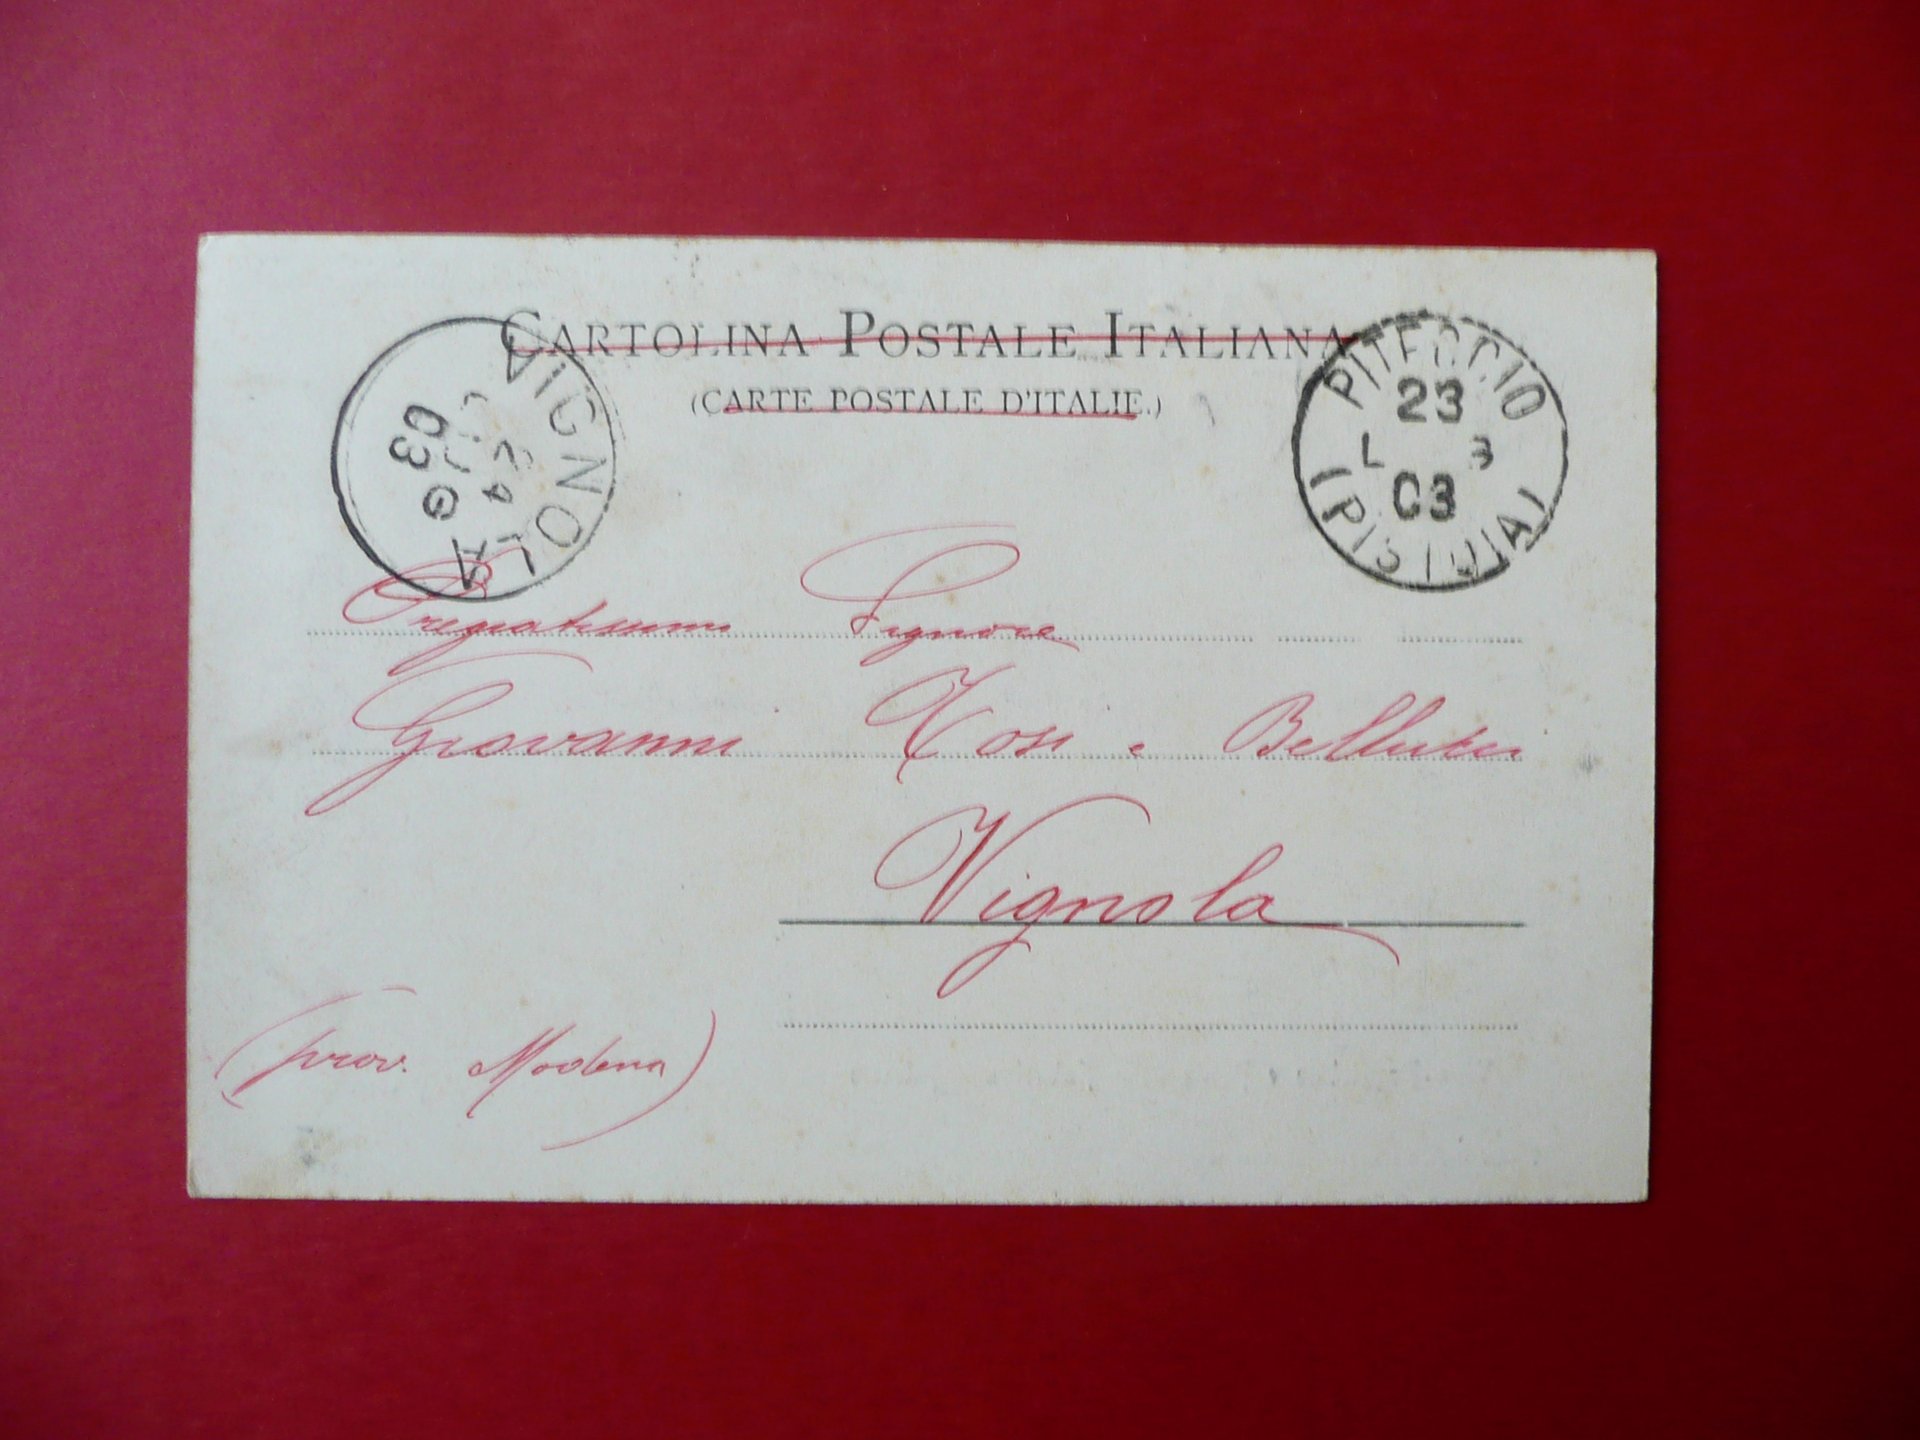 CARTOLINA POSTALE ITALIANA
(CARTE POSTALE D'ITALIE.)
VIGNOLA
03
PITECCIO
23
L 8
03
(PISTOIA)
Pregiatissimo Signore
Giovanni Tosi e Bellucci
Vignola
(prov. Modena)